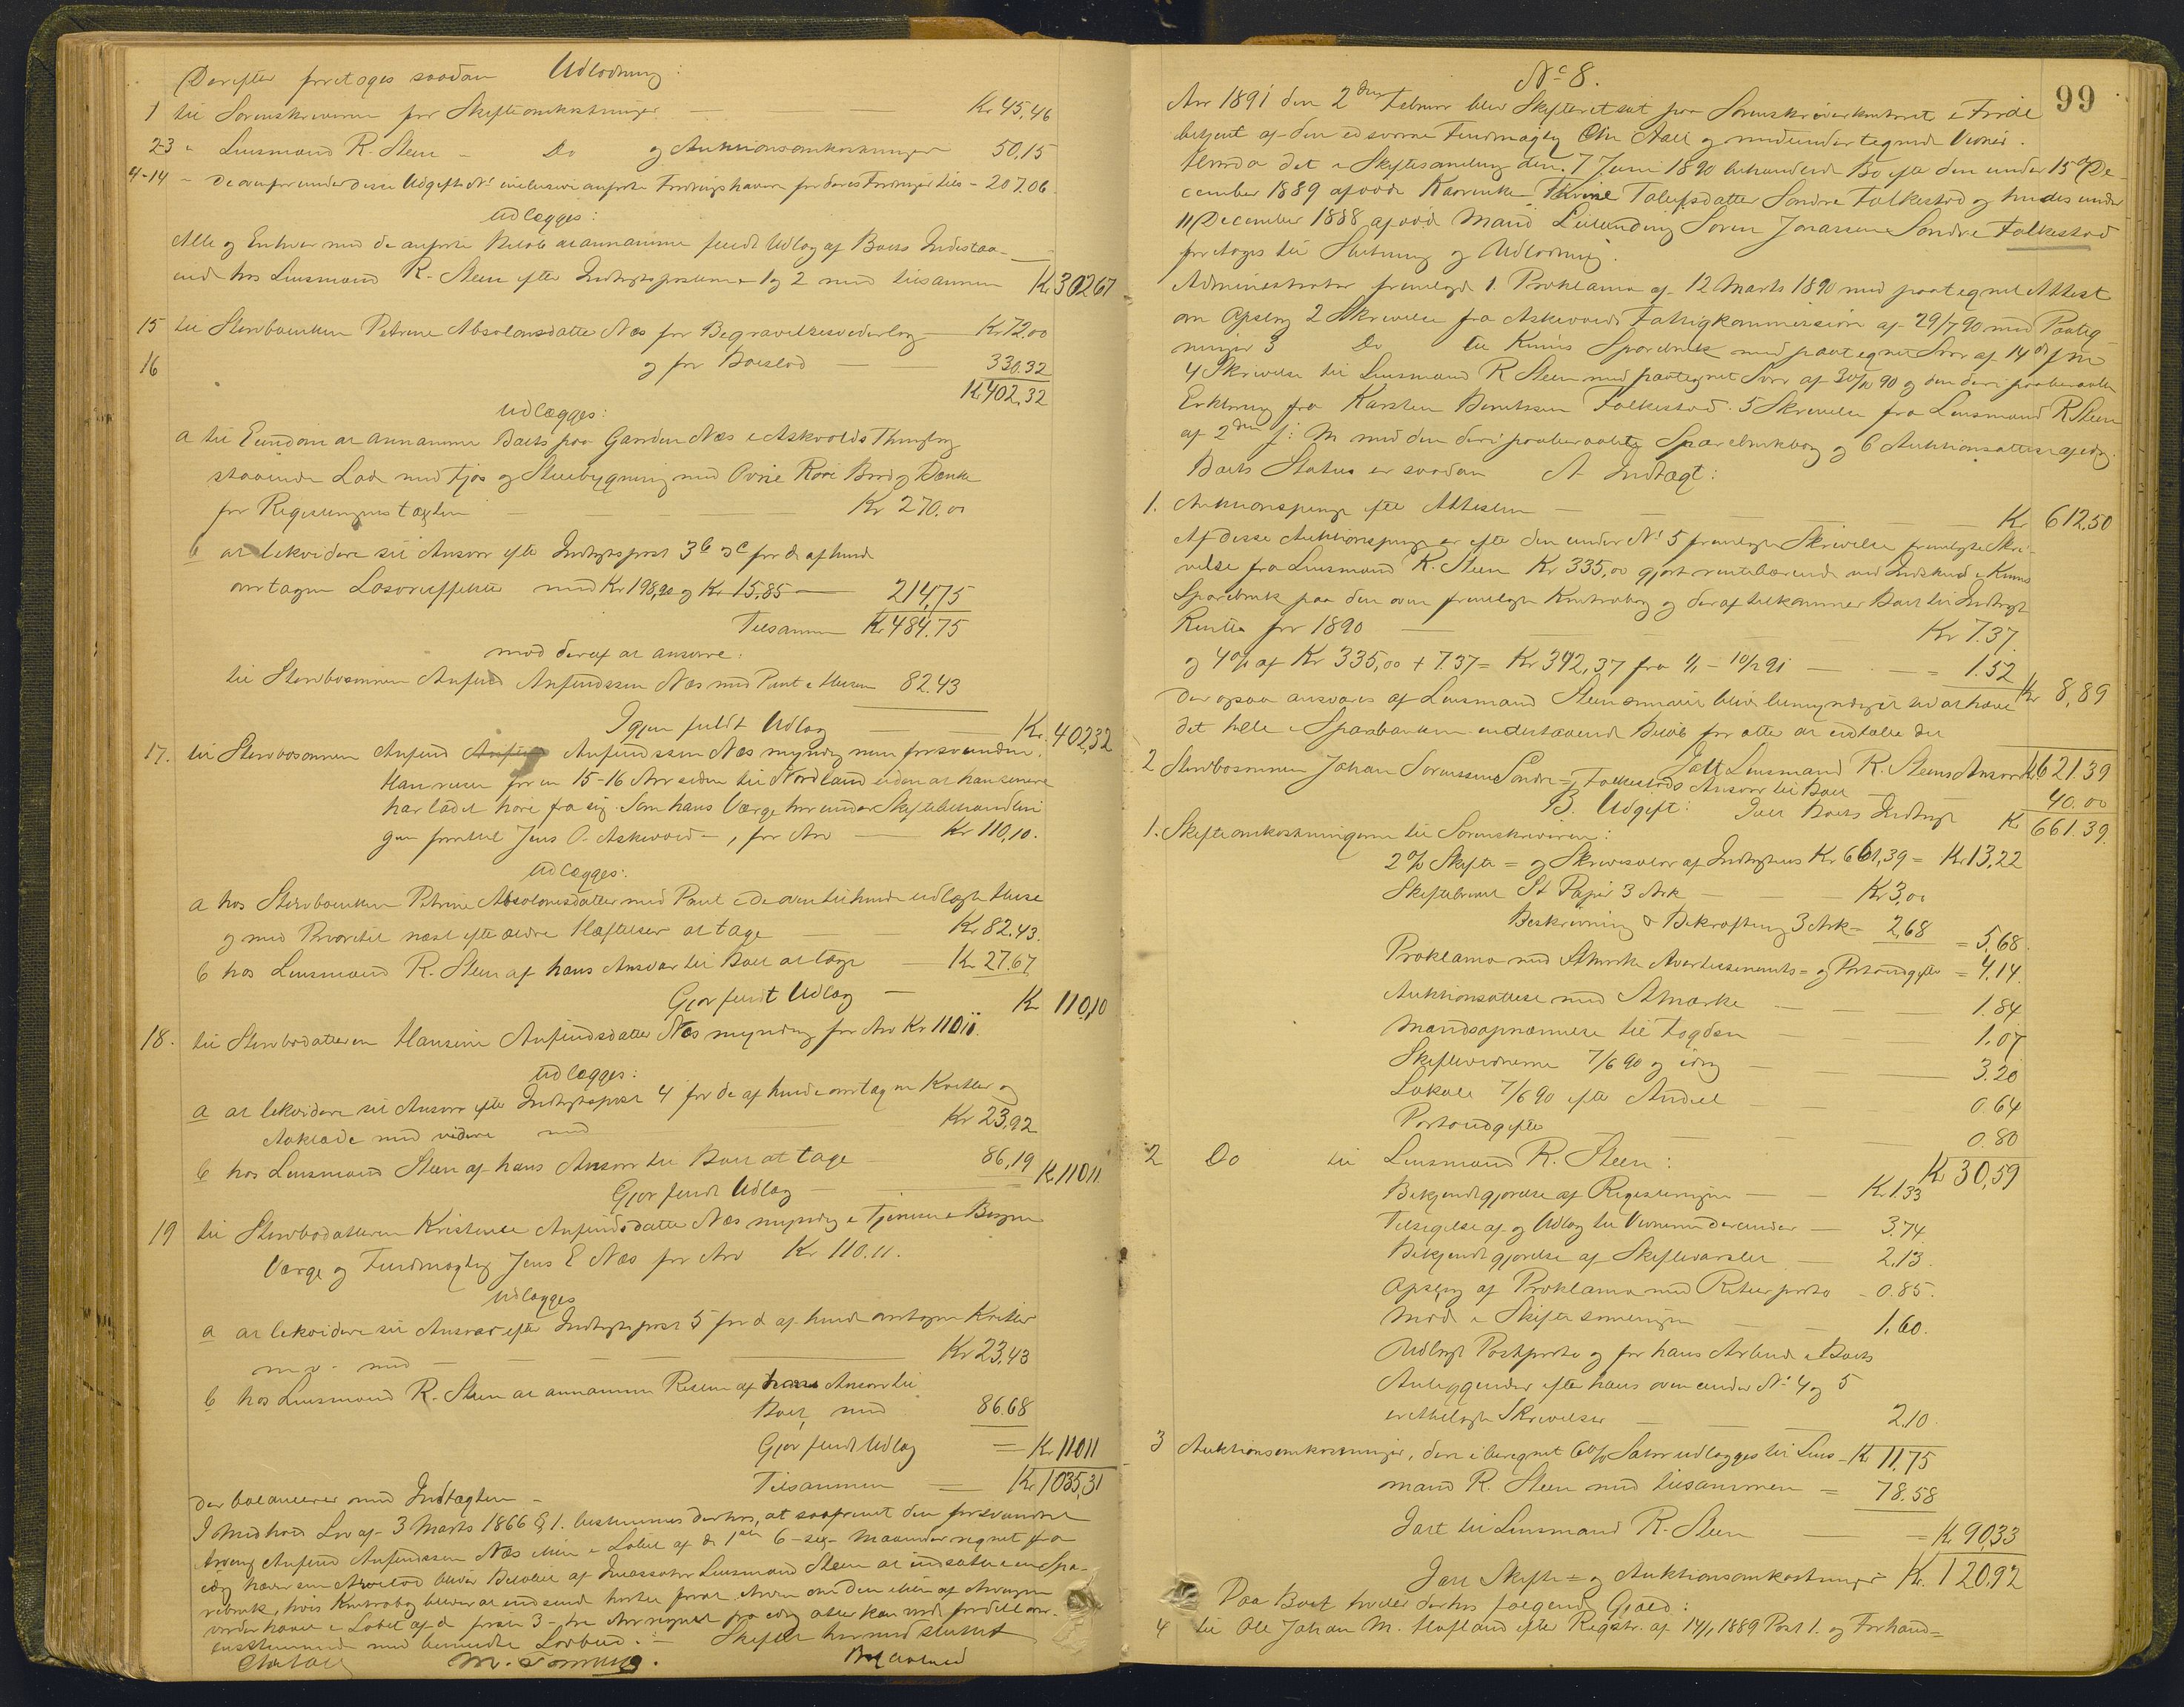 Derefter foretoges saadan Udlodning:
1 til Sorenskriveren for Skifteomkostninger — — Kr 45,46
2-3 " Lensmand R. Steen - Do og Auktionsomkostninger 50,15
4-14 - De ovenfor under disse Udgifts No inclusive anførte Fordringshavere for deres Fordringer tils - 207.06
udlægges:
Alle og Enhver med de anførte Beløb at annamme fuldt Udlæg af Boets Indestaa-
ende hos Lensmand R. Steen efter Indtægtsposterne 1 og 2 med tilsammen Kr 302 67
15 til Stervboenken Petrine Absalonsdatter Næs for Begravelsesvederlag — Kr 72.00
16 og for Boeslod — — 330.32
Kr 402.32
udlægges:
a til Eiendom at annamme Boets paa Gaarden Næs i Askvolds Thinglag
staaende Lade med Fjøs og Stuebygning med Ovne Rør Bord og Bænke
for Registreringstaxten — — — Kr 270.00
b at likvidere sit Ansvar efter Indtægtspost 3b 3c for de af hende
overtagne Løsøreffekter med Kr 198,90 og Kr 15,85 — 214,75
Tilsammen Kr 484.75
mod deraf at ansvare:
til Stervbosønnen Anfind Anfindssen Næs med Pant i Husene 82.43
Igjen fuldt Udlæg — Kr. 402,32
17. til Stervbosønnen Anfind Anfindssen Næs myndig men forsvunden.
Han reiste for en 15-16 Aar siden til Nordland uden at han senere
har ladet høre fra sig. Som hans Værge har under Skiftebehandlin
gen forholdt Jens O. Askvold -, for Arv — Kr 110,10.
udlægges:
a hos Stervboenken Petrine Absalonsdatter med Pant i de oven til hende udlagte Huse
og med Prioritet næst efter ældre Hæftelser at tage — Kr 82.43.
b hos Lensmand R. Steen af hans Ansvar til Boet at tage — Kr 27.67
Gjør fuldt Udlæg — Kr 110,10
18. til Stervbodatteren Hansine Anfindsdatter Næs myndig for Arv Kr 110 11.
udlægges:
a at likvidere sit Ansvar efter Indtægtspost 4 for de af hende overtagne Kvitler og
Aaklæde med videre med Kr 23,92
b hos Lensmand Steen af hans Ansvar til Boet at tage 86,19
Gjør fuldt Udlæg — Kr 110 11
19 til Stervbodatteren Kristense Anfindsdatter Næs myndig i Tjeneste i Bergen
Værge og Fuldmægtig Jens E Næs for Arv Kr 110.11.
udlægges
a at likvidere sit Ansvar efter Indtægtspost 5 for de af hende overtagne Kvitler
m.v. med — — — Kr 23,43
b hos Lensmand R. Steen at annamme Resten af hans Ansvar til
Boet, med 86.68
Gjør fuldt Udlæg = Kr 110 11
Tilsammen = Kr 1035,31
der balancerer med Indtægten -
I Medhold Lov af 3 Marts 1866 § 1. bestemmes derhos, at saafremt den forsvundne
Arving Anfind Anfindssen Næs ikke i Løbet af de 1ste 6 - sex - Maaneder regnet fra
idag hæver sin Arvelod bliver Beløbet af Incassator Lensmand Steen at indsætte i en Spa-
rebank, hvis Kontrabog bliver at indsende hertil
vorder hævet i Løbet af de første 3 - tre Aar regnet fra idag atter kan fordeles over-
ensstemmende med bemeldte Lovbud. - Skiftet hermed sluttet
No 8.
99
Aar 1891 den 2den Februar blev Skifteret sat paa Sorenskriverkontoret i Førde
betjent af den edsvorne Fuldmægtig Chr Aall og medundertegnede Vidner.
Hvorda det i Skiftesamling den 7 Juni 1890 behandlede Bo efter den under 15de De-
cember 1889 afdøde Kaarenke Talufsdatter Søndre Folkestad og hendes under
11 December 1888 afdøde Mand Søren Jonassen Søndre Folkestad
foretoges til Slutning og Udlodning.
Administrator fremlagde 1. Proklama af 12 Marts 1890 med paategnet Attest
om Opslag 2 Skrivelse fra Askvolds Fattigkommission af 29/7 90 med Paateg-
ninger 3 Do til Kinns Sparebank med paategnet Svar af 14de f m
4 Skrivelse til Lensmand R Steen med paategnet Svar af 30/12 90 og den deri paaberaabte
Erklæring fra Karsten Berntssen Folkestad. 5 Skrivelse fra Lensmand R Steen
af 2den f: M med den deri paaberaabte Sparebankbog og 6 Auktionsattest af idag.
Boets Status er saadan A Indtægt:
1. Auktionspenge efter Attesten — — — Kr 612.50
Af disse Auktionspenge er efter den under No 5 fremlagte Skrivelse fremlagte Skri-
velse fra Lensmand R. Steen Kr 335,00 gjort rentebærende ved Indskud i Kinns
Sparebank paa den oven fremlagte Kontrabog og deraf tilkommer Boet til Indtægt
Renter for 1890 — — — Kr 7.37.
og 4% af Kr 335,00 + 7.37 = Kr 342,37 fra 1/1 - 10/2 91 — — = 1.52
Kr 8,89
der ogsaa ansvares af Lensmand Steen som vil blive bemyndiget til at hæve
det hele i Sparebanken indestaaende Beløb for atter at indtælle det
Ialt Lensmand R. Steens Ansvar Kr 621.39
2 Stervbosønnen Johan Sørenssen Søndre Folkestads Ansvar til Boet 40.00
B. Udgift: Ialt Boets Indtægt Kr 661.39.
1. Skifteomkostningerne til Sorenskriveren:
2% Skifte = og Skrivesalær af Indtægtens Kr 661,39 = Kr 13,22
Skiftebrevet St Papir 3 Ark — Kr 3,00
Beskrivning & Bekræftning 3 Ark = 2,68 = 5,68.
Proklama med Stmærke Avertissements = og Portoudgifter = 4.14.
Auktionsattest med Stmærke — — 1.84
Mandsopnævnelse til Fogden — — 1.07
Skiftevidnerne 7/6 90 og idag — — 3.20
Lokale 7/6 90 efter Andel — — 0.64
Portoudgifter — — — 0.80
Kr 30,59
2 Do til Lensmand R. Steen:
Bekjendtgjørelse af Registreringen — — Kr 1.33
Tilsigelse af og Udlæg til Vidnerne derunder — 3.74
Bekjendtgjørelse af Skiftevarslet — 2,13.
Opslag af Proklama med Returporto - 0.85.
Møde i Skiftesamlingen — — 1,60.
Udlagt Postporto og for hans Arbeide i Boets
Anliggender efter hans oven under No 4 og 5
Skrivelser — — 2.10.
Kr 11,75
3 Auktionsomkostninger, deri iberegnet 6% Salær udlægges til Lens-
mand R. Steen med tilsammen = 78.58
Ialt til Lensmand R. Steen — = Kr 90,33
Ialt Skifte = og Auktionsomkostninger Kr. 120,92
Paa Boet hviler derhos følgende Gjæld:
4 til Ole Johan M. Hofland efter Registr. af 14/1 1889 Post 1. og Forhand=